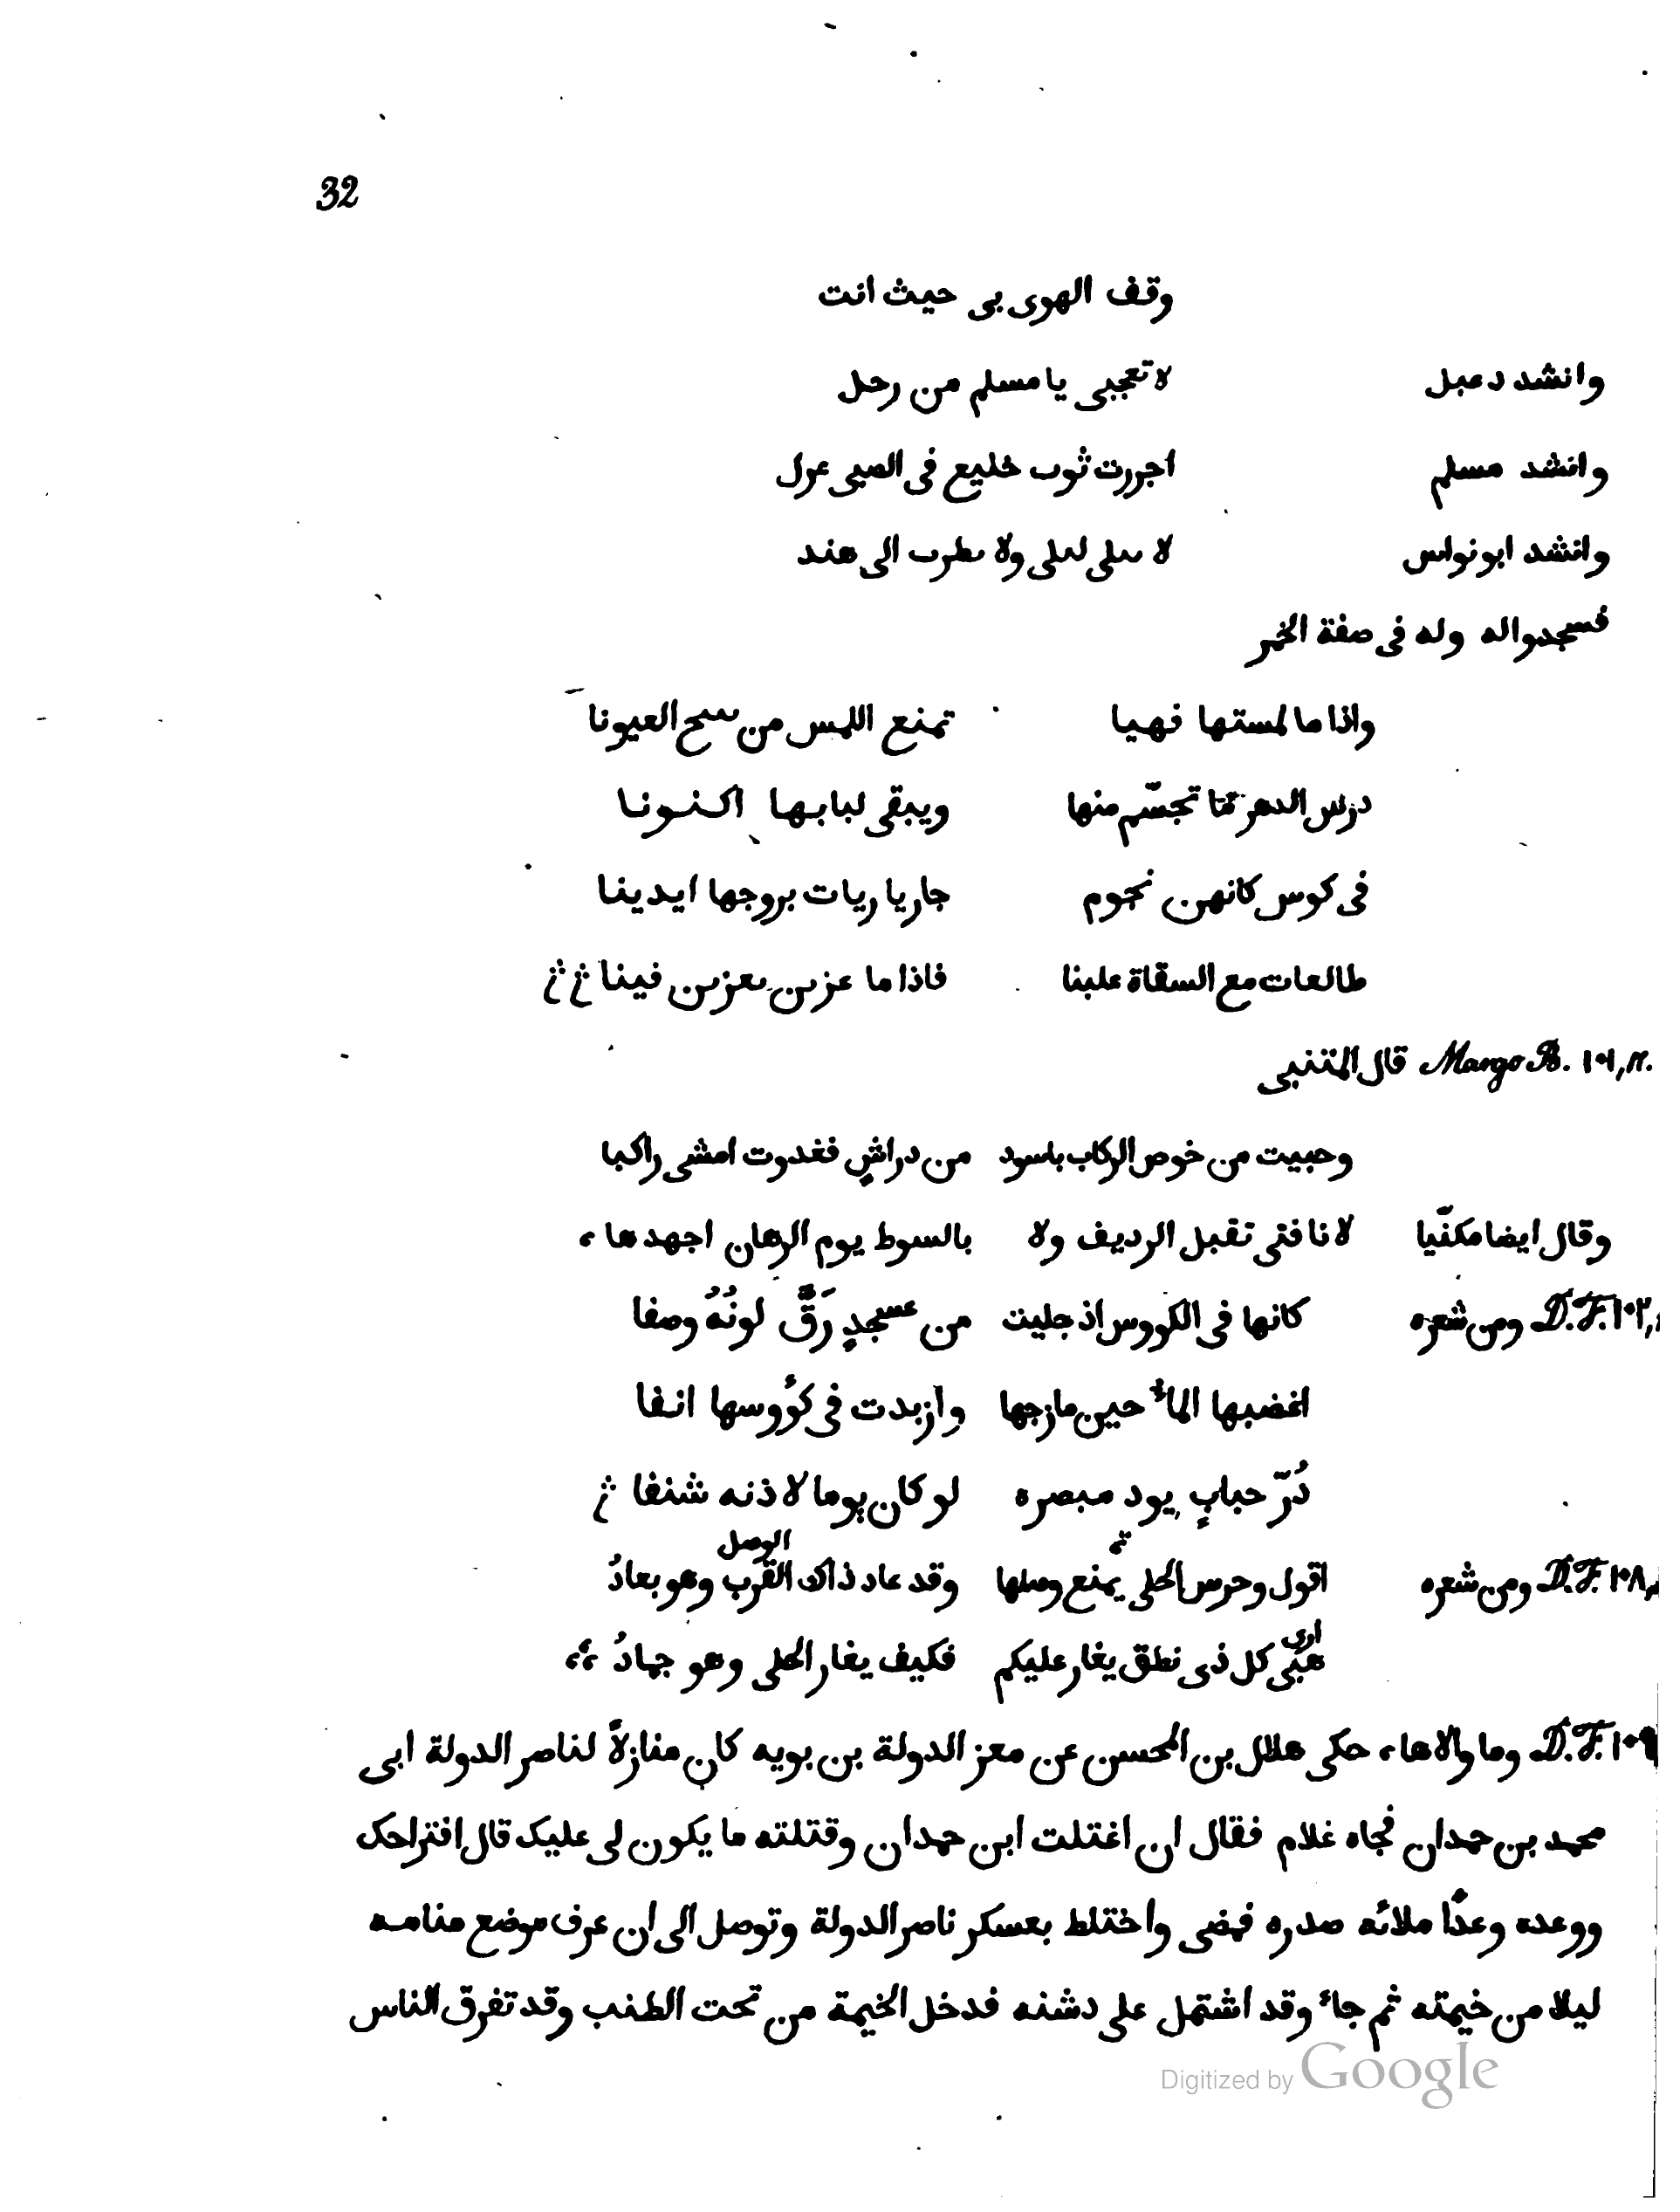 32
وقف الهوى بى حيث انت
وانشد دعبل لا تعجبى يا مسلم من رحل
وانشد مسلم اجررت ثوب خليع فى الصبى عرل
وانشد ابو نواس لا ىىلى لىلى ولا ىطرب الى هند
فسجدوا له وله فى صفة الخمر
واذا ما لمستها فهيا تمنع اللمس من العيونا
درس الدهر ما تجسّم منها ويبقى لبابها اكنونا
فى كوس كانهن نجوم جاريا ريات بروجها ايدينا
طالعات مع السقاة علينا فاذا ما عزبن ىعزبن فينا
Margo B. ١٠١,١٢. قال المتنبى
وحبيت من خوص الركاب باسود من دراشٍ فغدوت امشى راكبا
وقال ايضا مكنّيا لا نافتى تقبل الرديف ولا بالسوط يوم الرهان اجهدها،
D.F. ١٠٢, ومن شعره كانها فى الكووس اذ جليت من عسجدٍ رَقَّ لونُهُ وصفا
اغضبها الماء حين مازجها وازبدت فى كؤوسها انفا
دُرّ حبابٍ يود مبصره لو كان يوما لاذنه شنفا
الوصل
D.F. ١٠٨, ومن شعره اقول وحرس الحلى يمنع وصلها وقد عاد ذاك القرب وهو بعادُ
ارى
هبّى كل ذى نطق يغار عليكم فكيف يغار الحلى وهو جمادُ
D.F. ١٠٩ وما والاها، حكى هلال بن المحسن عن معز الدولة بن بويه كان منازلاً لناصر الدولة ابى
محمد بن حمدان فجاه غلام فقال ان اغتلت ابن حمدان وقتلته ما يكون لى عليك قال افتراحك
ووعده وعدًا ملائه صدره فمضى واختلط بعسكر ناصر الدولة وتوصل الى ان عرف موضع منامه
ليلا من خيمته ثم جاء وقد اشتمل على دشنه فدخل الخيمة من تحت الطنب وقد تفرق الناس
Digitized by Google